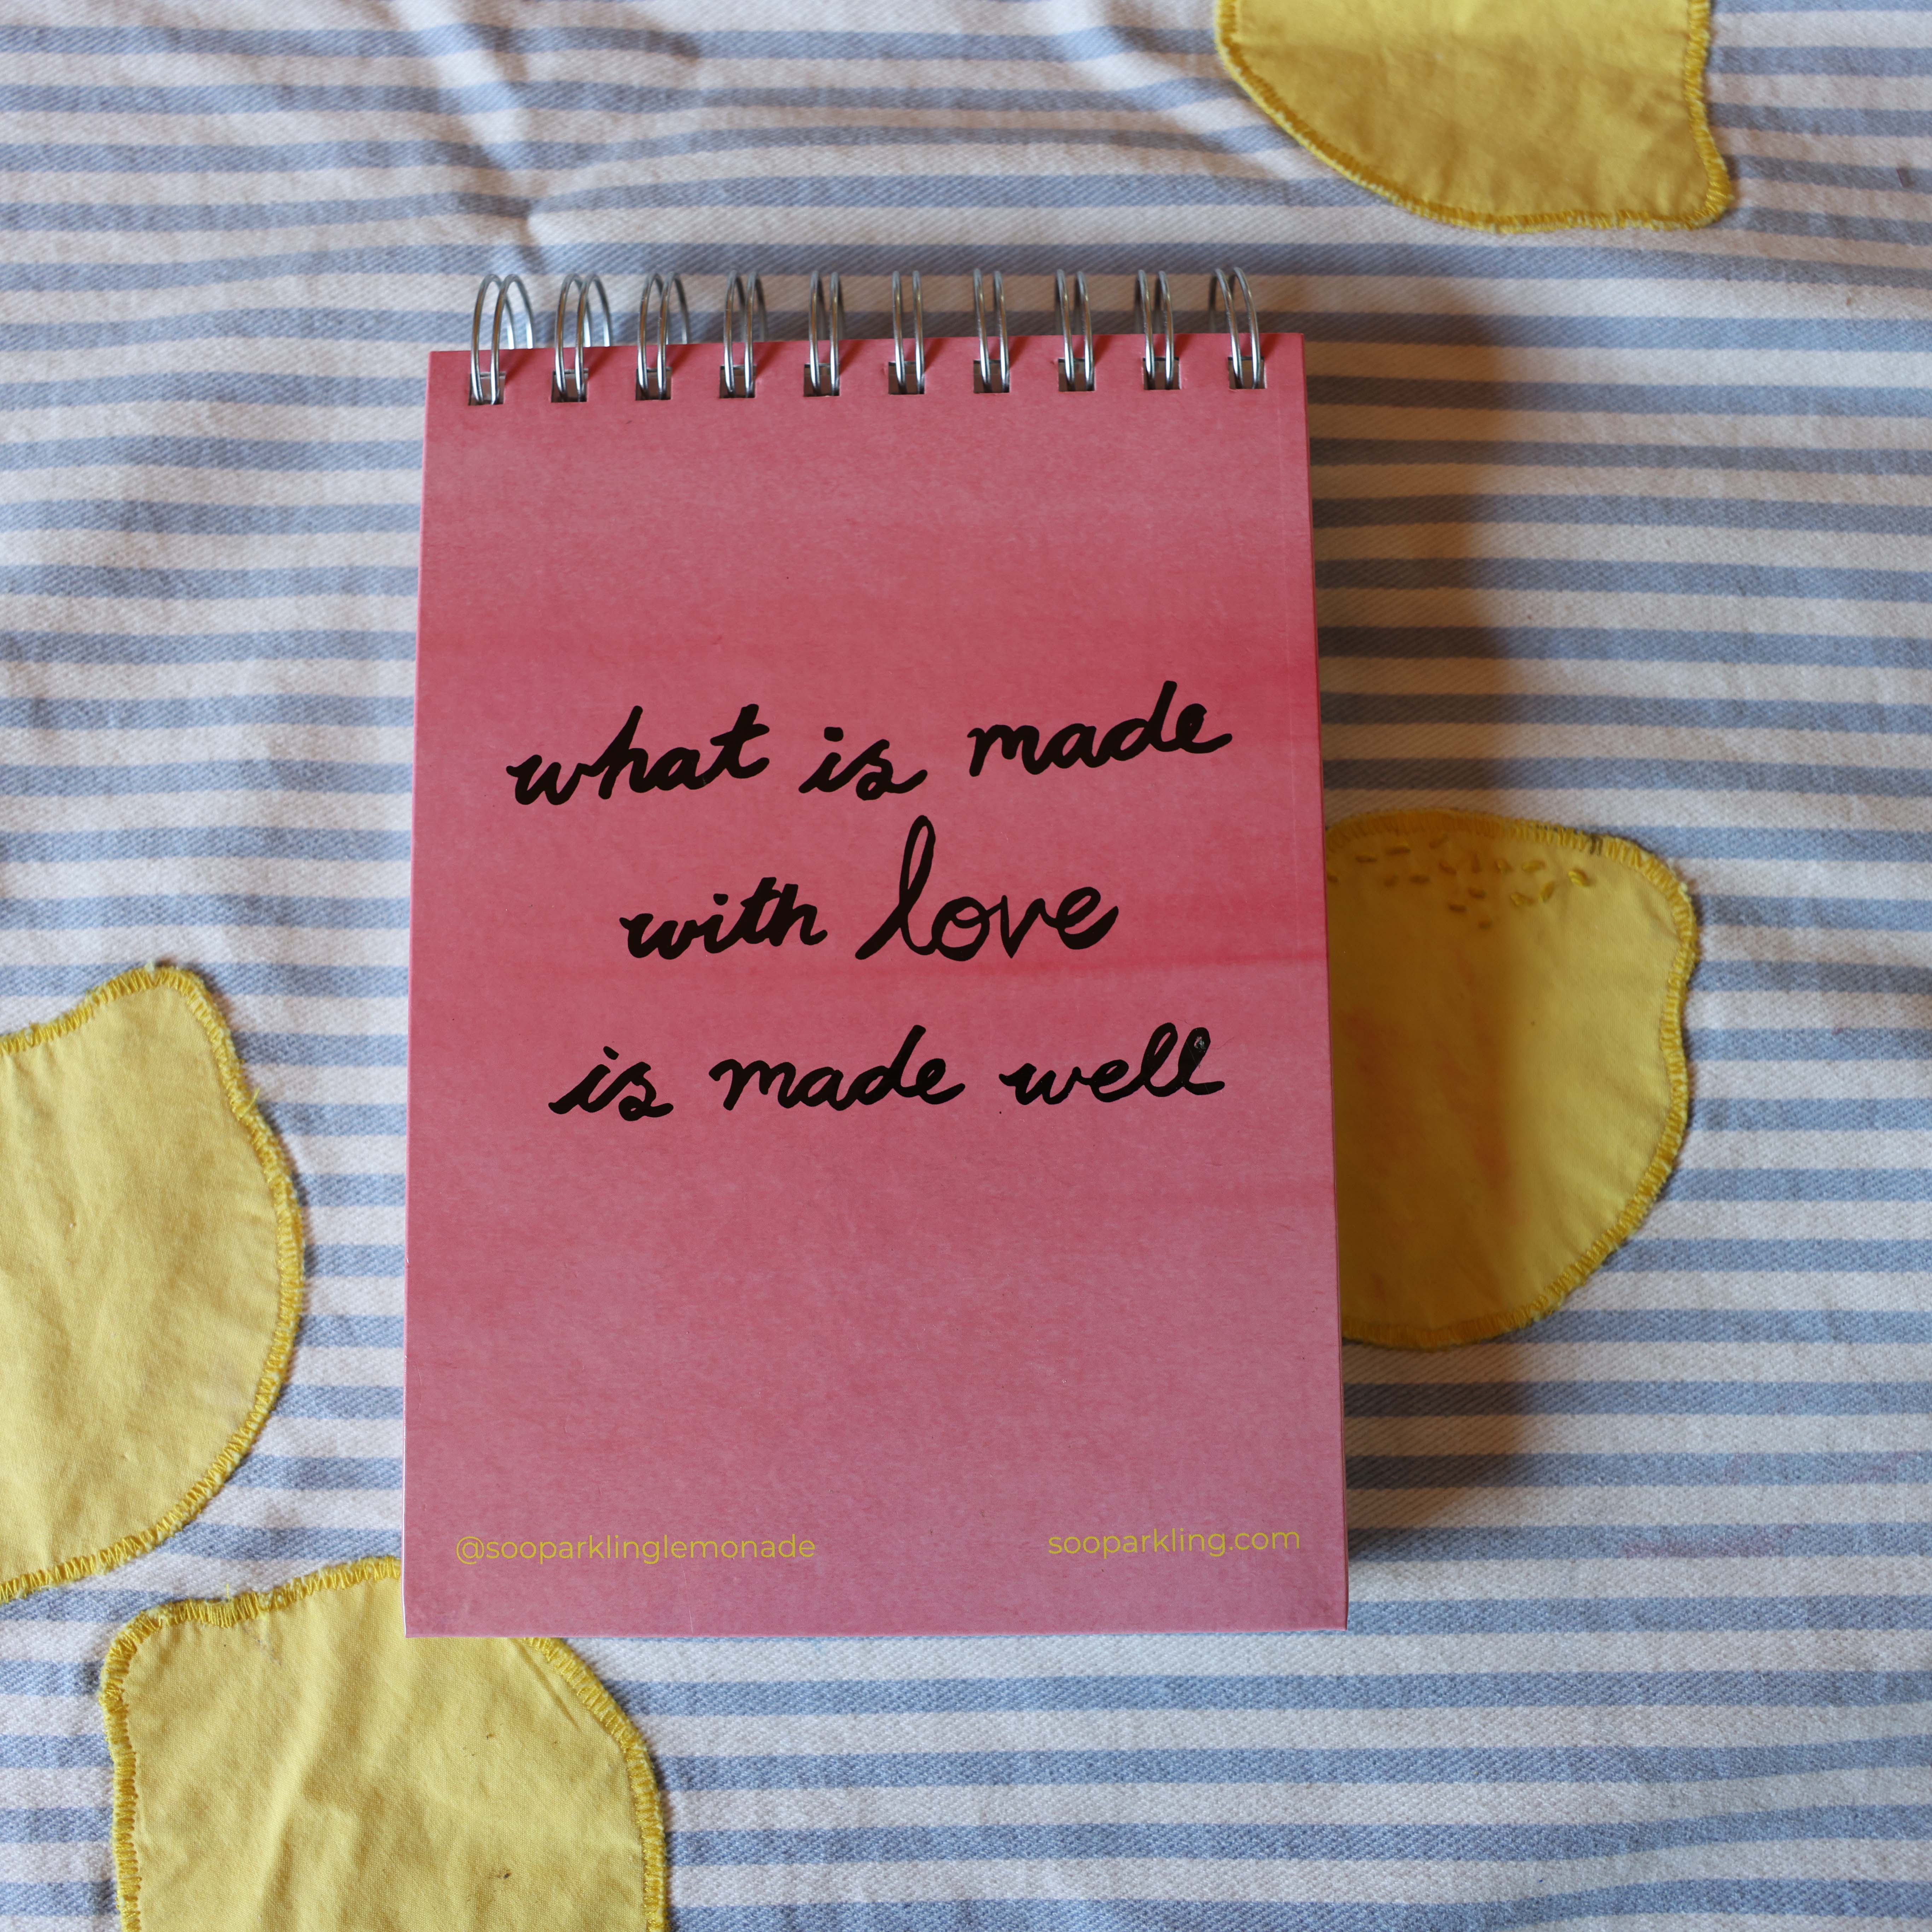 what is made
with love
is made well
@sooparklinglemonade
sooparkling.com